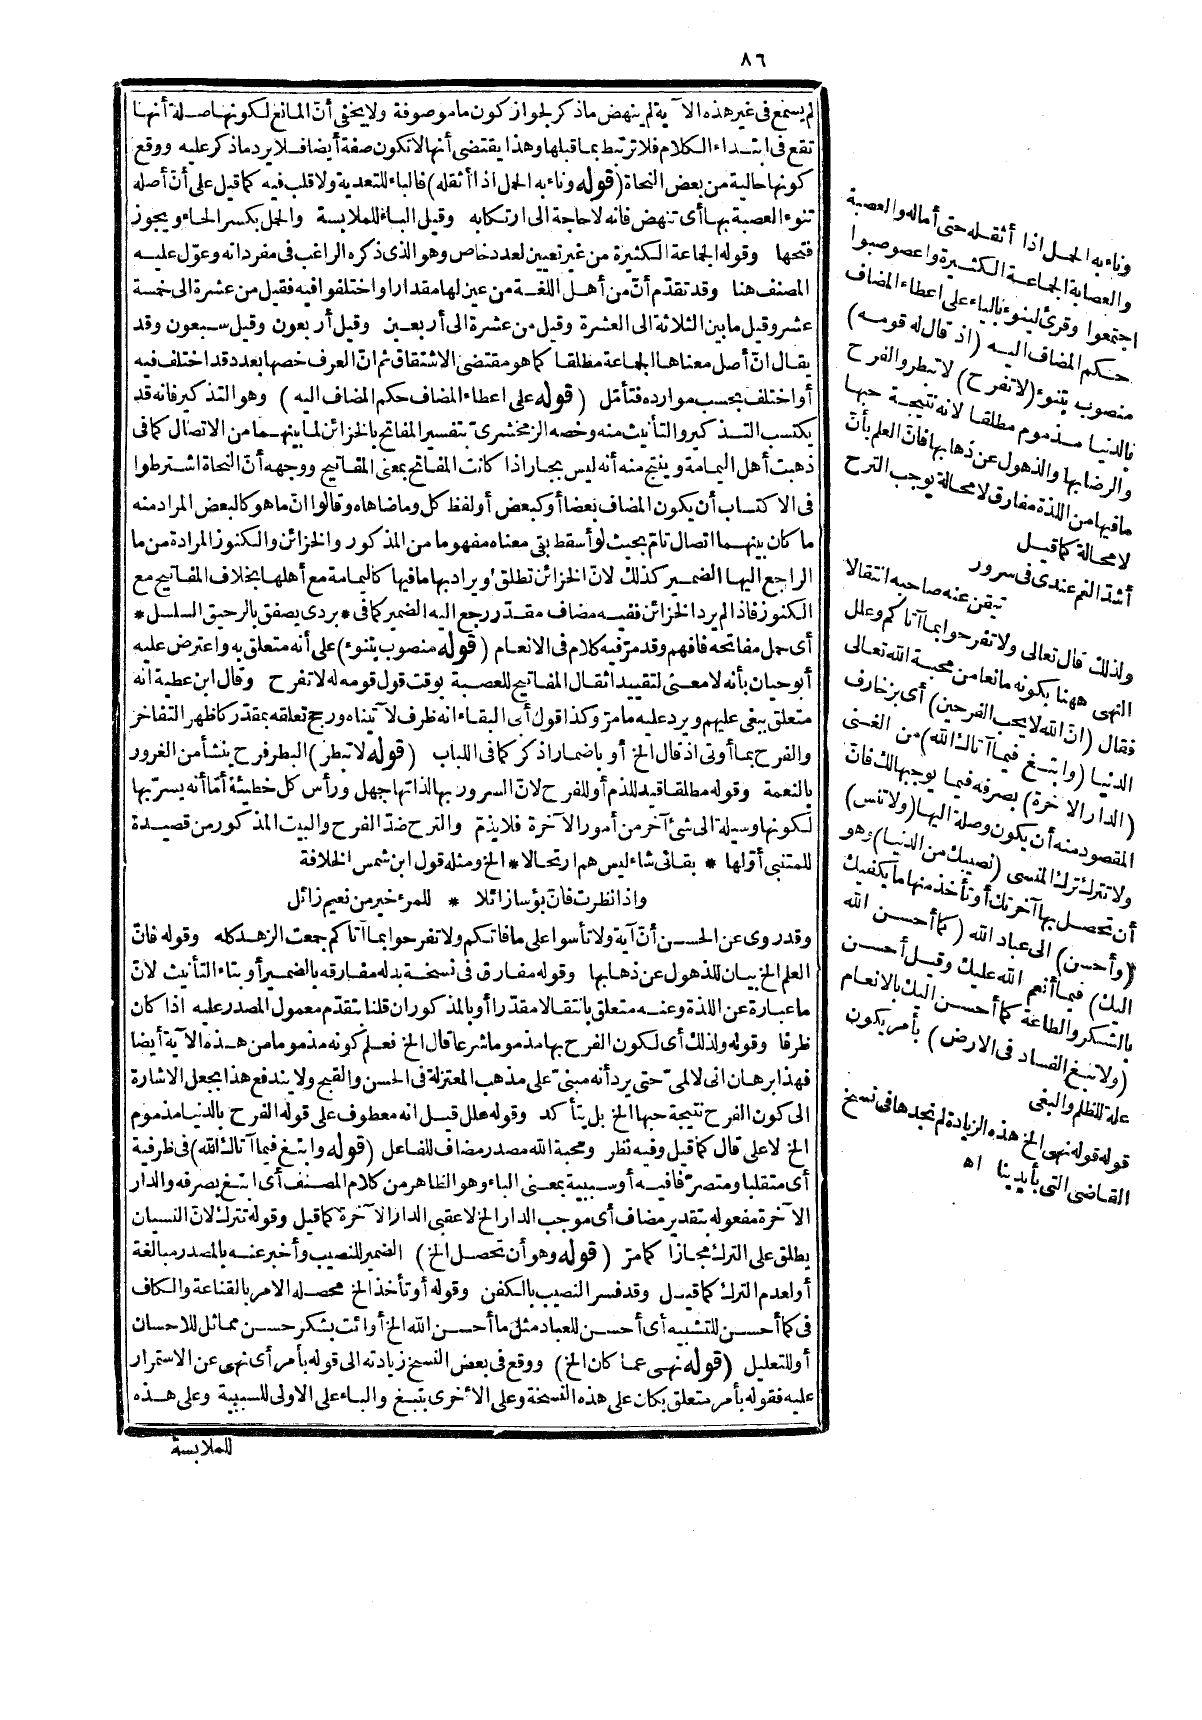 ٨٦
لم يسمع فى غير هذه الآية لم ينهض ماذكر لجواز كون ما موصوفة ولا يخفى أنّ المانع لكونها صلة أنها
تقع فى ابتداء الكلام فلا ترتبط بما قبلها وهذا يقتضى أنها لا تكون صفة أيضا فلا يرد ماذكر عليه ووقع
كونها حالية من بعض النحاة (قوله وناء به الحمل اذا أثقله) فالباء للتعدية ولا قلب فيه كما قيل على أنّ أصله
تنوء العصبة بها أى تنهض فانه لا حاجة الى ارتكابه وقيل الباء للملابسة والحمل بكسر الحاء ويجوز
فتحها وقوله الجماعة الكثيرة من غير تعيين لعدد خاص وهو الذى ذكره الراغب فى مفرداته وعوّل عليه
المصنف هنا وقد تقدّم أنّ من أهل اللغة من عين لها مقدارا واختلفوا فيه فقيل من عشرة الى خمسة
عشر وقيل ما بين الثلاثة الى العشرة وقيل من عشرة الى أربعين وقيل أربعون وقيل سبعون وقد
يقال انّ أصل معناها الجماعة مطلقا كما هو مقتضى الاشتقاق ثم انّ العرف خصها بعدد قد اختلف فيه
أو اختلف بحسب موارده فتأمّل (قوله على اعطاء المضاف حكم المضاف اليه) وهو التذكير فانه قد
يكتسب التذكير والتأنيث منه وخصه الزمخشرىّ بتفسير المفاتح بالخزائن لما بينهما من الاتصال كما فى
ذهبت أهل اليمامة وينتج منه أنه ليس بجار اذا كانت المفاتح بمعنى المقاتيح ووجهه أنّ النحاة اشترطوا
فى الاكتساب أن يكون المضاف بعضا أو كبعض أو لفظ كل وما ضاهاه وقالوا انّ ما هو كالبعض المراد منه
ما كان بينهما اتصال تامّ بحيث لو أسقط بقى معناه مفهوما من المذكور والخزائن والكنوز المرادة من ما
الراجع اليها الضمير كذلك لانّ الخزائن تطلق ويراد بها ما فيها كاليمامة مع أهلها بخلاف المفاتيح مع
الكنوز فاذا لم يرد الخزائن ففيه مضاف مقدّر رجع اليه الضمير كما فى * بردى يصفق بالرحيق السلسل *
أى حمل مفاتحه فافهم وقد مرّ فيه كلام فى الانعام (قوله منصوب بتنوء) على أنه متعلق به واعترض عليه
أبو حيان بأنه لا معنى لتقييد اثقال المفاتيح للعصبة بوقت قول قومه له لا تفرح وقال ابن عطية انه
متعلق ببغى عليهم ويرد عليه ما مرّ وكذا قول أبى البقاء انه ظرف لآتيناه ورجح تعلقه بمقدّر كأظهر التفاخر
والفرح بما أوتى اذ قال الخ أو باضمار اذكر كما فى اللباب (قوله لا تبطر) البطر فرح ينشأ من الغرور
بالنعمة وقوله مطلقا قيد للذم أو للفرح لانّ السرور بها لذاتها جهل ورأس كل خطيئة أمّا أنه يسرّ بها
لكونها وسيلة الى شئ آخر من أمور الآخرة فلا يذمّ والترح ضدّ الفرح والبيت المذكور من قصيدة
للمتنبى أوّلها * بقائى شاء ليس هم ارتحالا * الخ ومثله قول ابن شمس الخلافة
واذا نظرت فانّ بؤسا زائلا * للمرء خير من نعيم زائل
وقد روى عن الحسن أنّ آية ولا تأسوا على ما فاتكم ولا تفرحوا بما آتاكم جمعت الزهد كله وقوله فانّ
العلم الخ بيان للذهول عن ذهابها وقوله مفارق فى نسخة بدله مفارقه بالضمير أو بتاء التأنيث لانّ
ما عبارة عن اللذة وعنه متعلق بانتقالا مقدّرا أو بالمذكور ان قلنا بتقدّم معمول المصدر عليه اذا كان
ظرفا وقوله ولذلك أى لكون الفرح بها مذموما شرعا قال الخ نعلم كونه مذموما من هذه الآية أيضا
فهذا برهان انى لا لمىّ حتى يرد أنه مبنىّ على مذهب المعتزلة فى الحسن والقبح ولا يندفع هذا بجعل الاشارة
الى كون الفرح نتيجة حبها الخ بل يتأكد وقوله علل قيل انه معطوف على قوله الفرح بالدنيا مذموم
الخ لا على قال كما قيل وفيه نظر ومحبة الله مصدر مضاف للفاعل (قوله وابتغ فيما آتاك الله) فى ظرفية
أى متقلبا ومتصرّفا فيه أو سببية بمعنى الباء وهو الظاهر من كلام المصنف أى ابتغ بصرفه والدار
الآخرة مفعوله بتقدير مضاف أى موجب الدار الخ لا عقبى الدار الآخرة كما قيل وقوله تترك لانّ النسيان
يطلق على الترك مجازا كما مرّ (قوله وهو أن تحصل الخ) الضمير للنصيب وأخبر عنه بالمصدر مبالغة
أو لعدم الترك كما قيل وقد فسر النصيب بالكفن وقوله أو تأخذ الخ محصله الامر بالقناعة والكاف
فى كما أحسن للتشبيه أى أحسن للعباد مثل ما أحسن الله الخ أو ائت بشكر حسن مماثل للاحسان
أو للتعليل (قوله نهى عما كان الخ) ووقع فى بعض النسخ زيادته الى قوله بأمر أى نهى عن الاستمرار
عليه فقوله بأمر متعلق بكان على هذه النسخة وعلى الأخرى بتبغ والباء على الاولى للسببية وعلى هذه
للملابسة
وناء به الحمل اذا أثقله حتى أماله والعصبة
والعصابة الجماعة الكثيرة واعصوصبوا
اجتمعوا وقرئ لينوء بالياء على اعطاء المضاف
حكم المضاف اليه (اذ قال له قومه)
منصوب بتنوء (لا تفرح) لا تبطر والفرح
بالدنيا مذموم مطلقا لانه نتيجة حبها
والرضا بها والذهول عن ذهابها فانّ العلم بأنّ
ما فيها من اللذة مفارق لا محالة يوجب الترح
لا محالة كما قيل
أشدّ الغم عندى فى سرور
تيقن عنه صاحبه انتقالا
ولذلك قال تعالى ولا تفرحوا بما آتاكم وعلل
النهى ههنا بكونه مانعا من محبة الله تعالى
فقال (انّ الله لا يحب الفرحين) أى بزخارف
الدنيا (وابتغ فيما آتاك الله) من الغنى
(الدار الآخرة) بصرفه فيما يوجبها لك فانّ
المقصود منه أن يكون وصلة اليها (ولا تنس)
ولا تترك ترك المنسى (نصيبك من الدنيا) وهو
أن تحصل بها آخرتك أو تأخذ منها ما يكفيك
(وأحسن) الى عباد الله (كما أحسن الله
اليك) فيما أنعم الله عليك وقيل أحسن
بالشكر والطاعة كما أحسن اليك بالانعام
(ولا تبغ الفساد فى الارض) بأمر يكون
علة للظلم والبغى
قوله قوله نهى الخ هذه الزيادة لم نجدها فى نسخ
القاضى التى بأيدينا اه